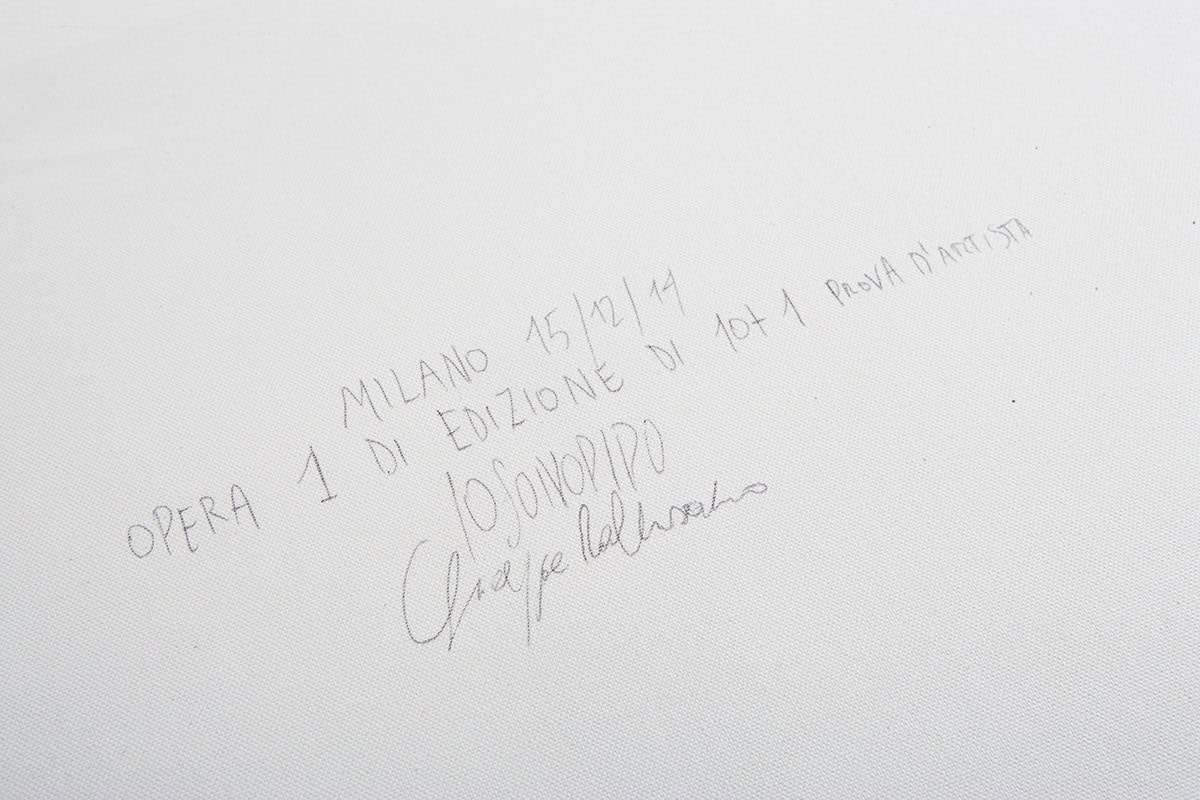 MILANO 15/12/14
OPERA 1 DI EDIZIONE DI 10+1 PROVA D'ARTISTA
IOSONOPIPO
Giuseppe